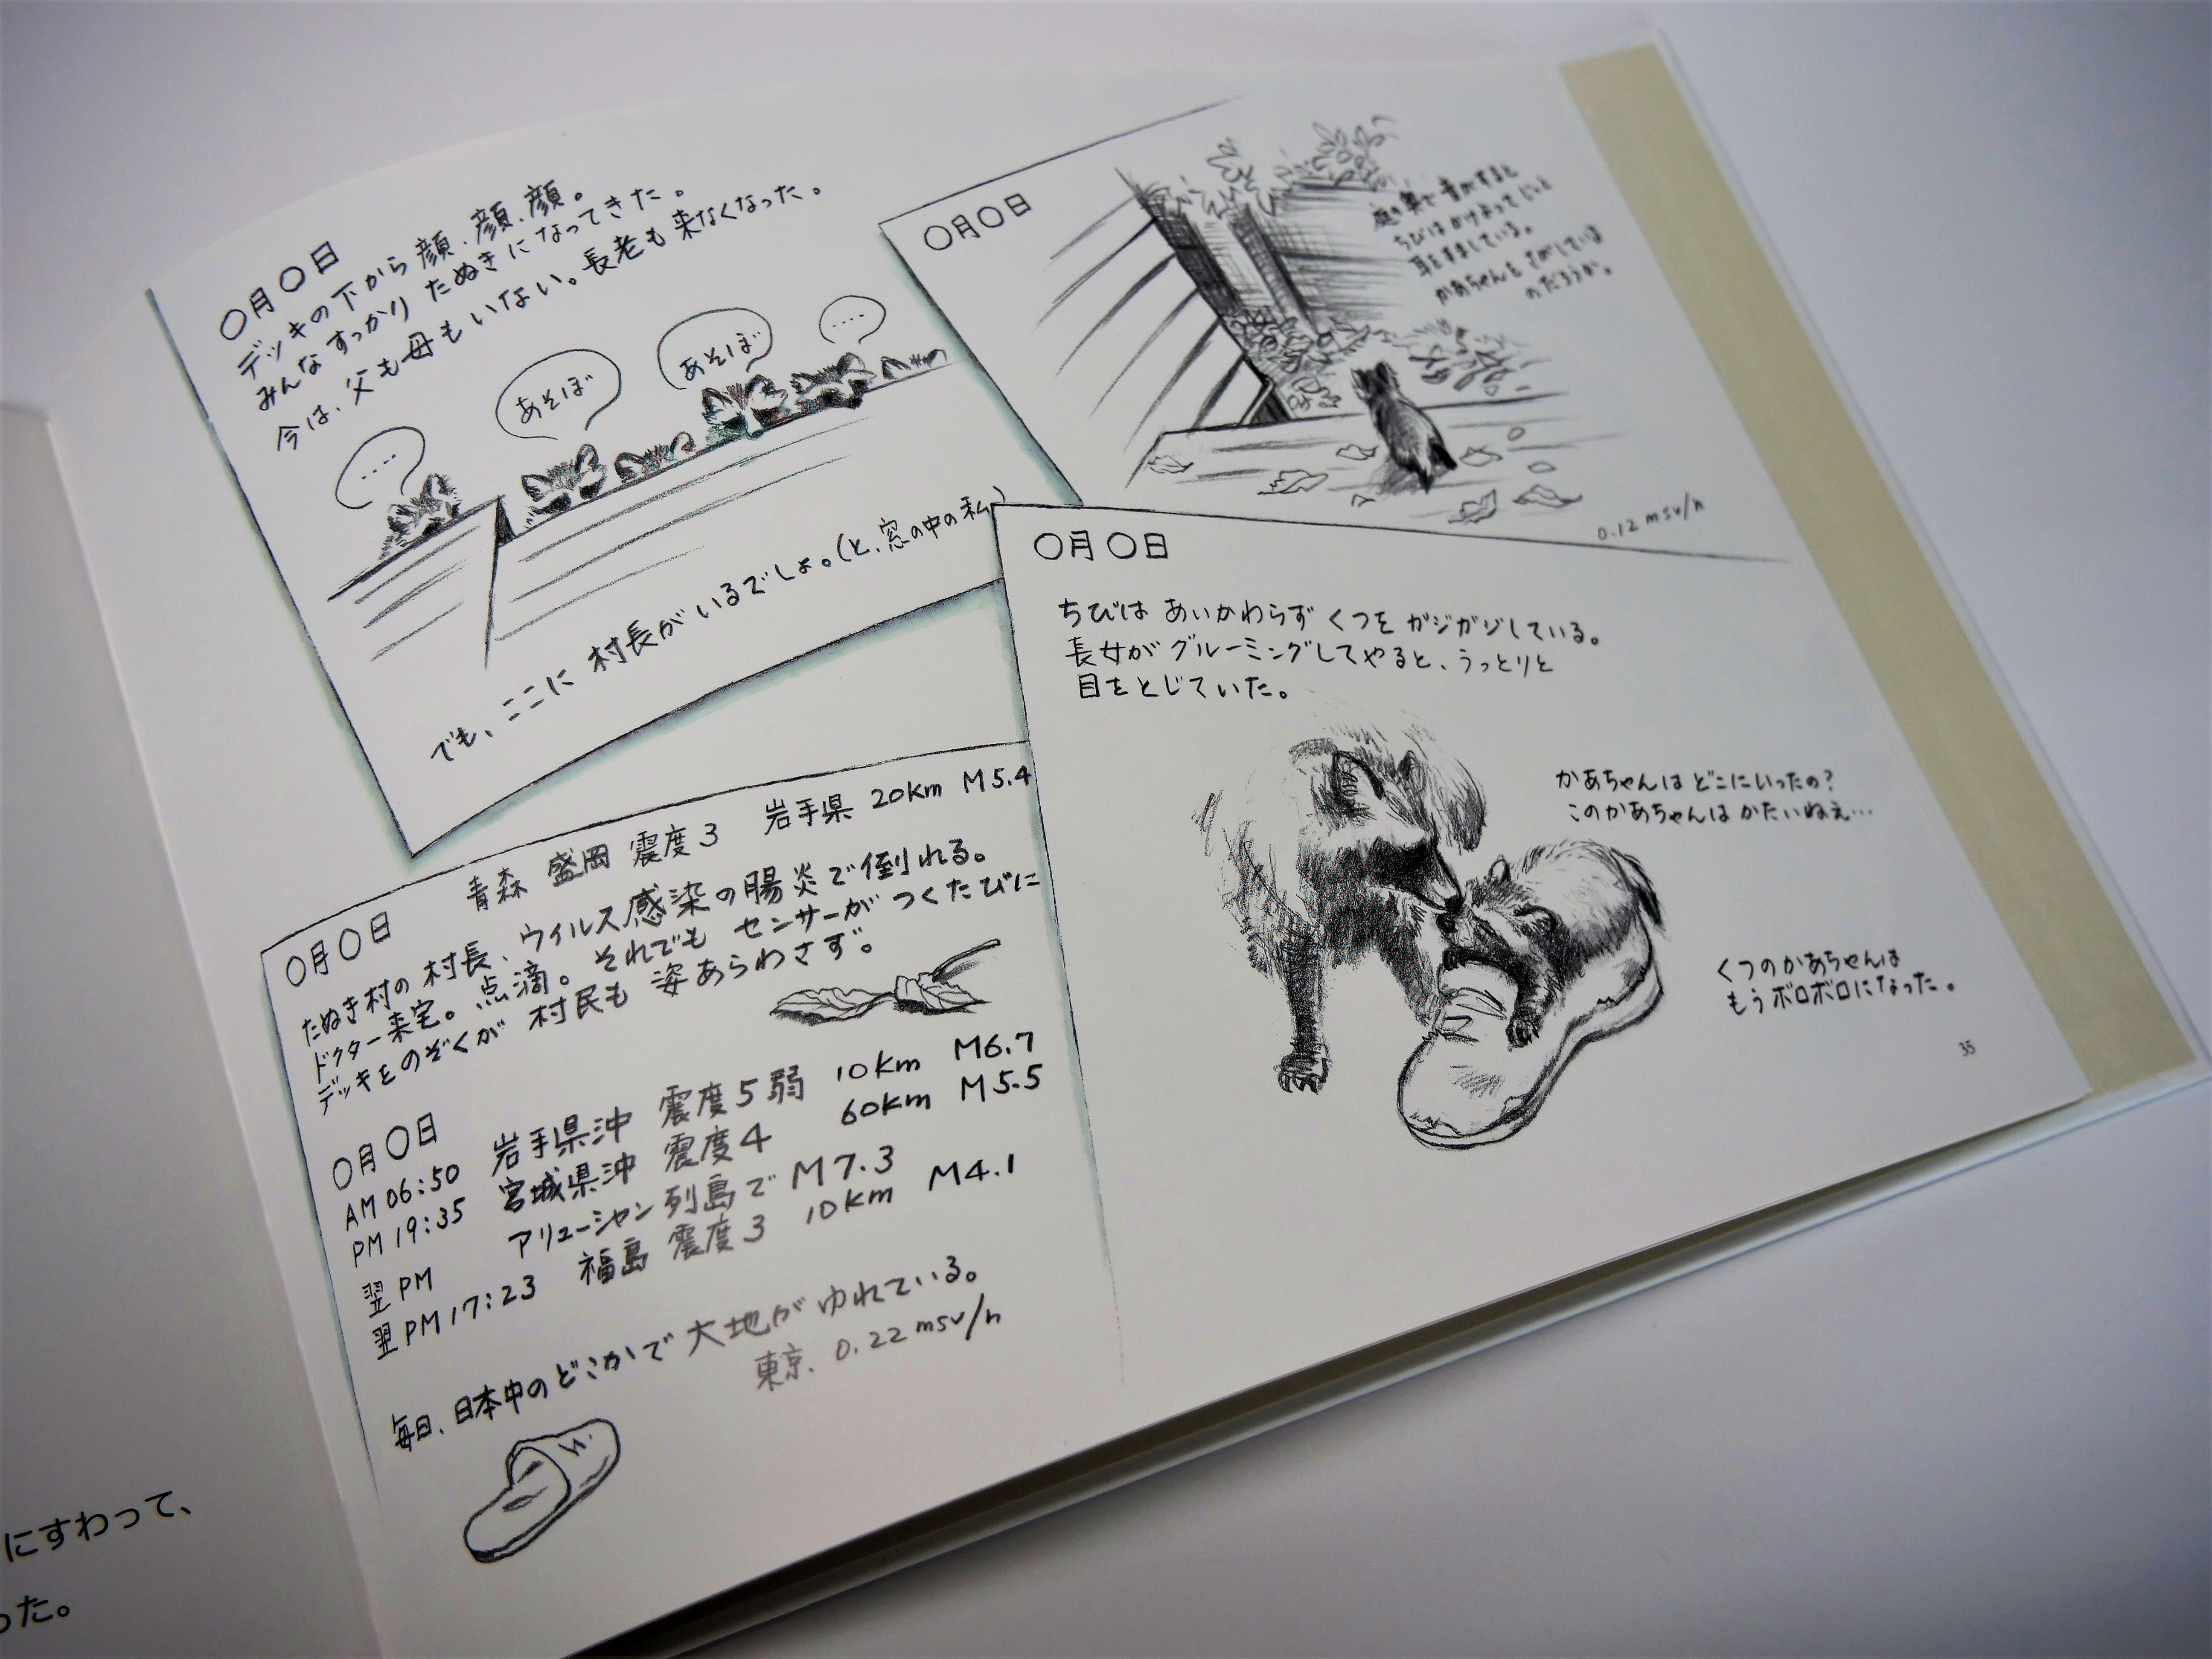 〇月〇日
デッキの下から顔、顔、顔。
みんなすっかりたぬきになってきた。
今は、父も母もいない。長老も来なくなった。
‥‥
あそぼ
あそぼ
‥‥
でも、ここに村長がいるでしょ。(と、窓の中の私)
〇月〇日
庭の奥で音がすると
ちびはかけよってじっと
耳をすましている。
かあちゃんをさがしている
のだろうか。
0.12 msv/h
〇月〇日
ちびは あいかわらず くつを ガジガジしている。
長女が グルーミングしてやると、うっとりと
目をとじていた。
かあちゃんは どこにいったの?
このかあちゃんは かたいぬぇ…
くつのかあちゃんは
もう ボロボロになった。
35
〇月〇日 青森 盛岡 震度3 岩手県 20km M5.4
たぬき村の村長、ウィルス感染の腸炎で倒れる。
ドクター来宅。点滴。それでも センサーが つくたびに
デッキをのぞくが 村民も 姿あらわさず。
〇月〇日
AM 06:50 岩手県沖 震度5弱 10km M6.7
PM 19:35 宮城県沖 震度4 60km M5.5
翌PM アリューシャン列島で M7.3
翌PM 17:23 福島 震度3 10km M4.1
毎日、日本中のどこかで 大地が ゆれている。
東京、0.22 msv/h
にすわって、
った。